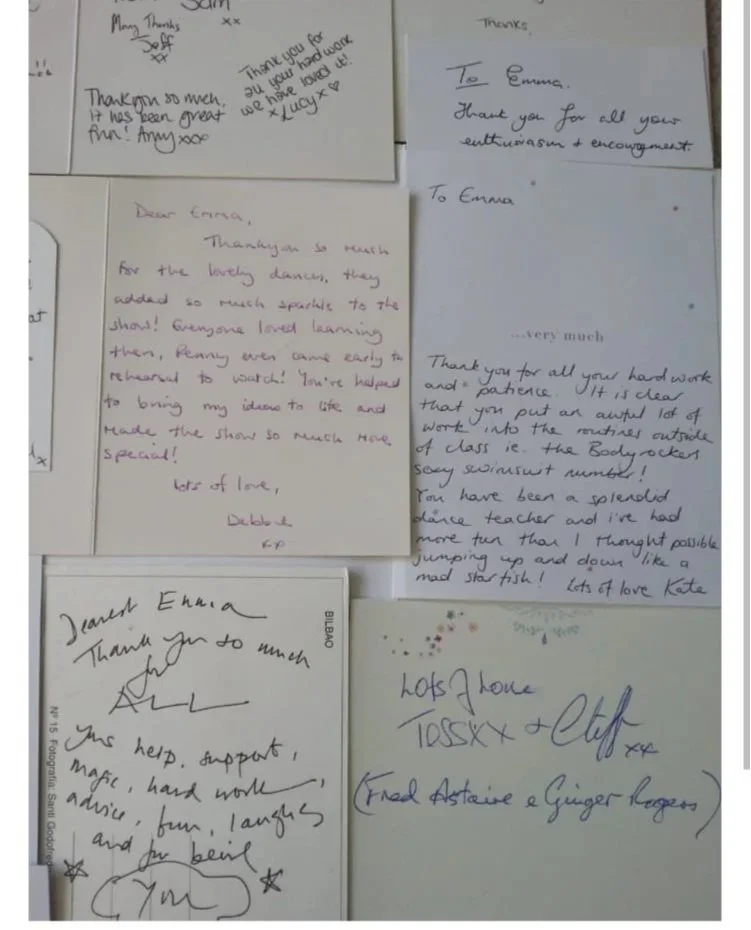 Sam
xx
Many Thanks
Jeff
xx
Thank you for
all your hard work
we have loved it!
x Lucy x
Thankyou so much,
It has been great
fun! Amy xxx
Thanks
To Emma.
Thank you for all your
enthusiasm + encouragement.
Dear Emma,
Thankyou so much
for the lovely dances, they
added so much sparkle to the
show! Everyone loved learning
them, Penny even came early to
rehearsal to watch! You've helped
to bring my ideas to life and
made the show so much more
special!
Lots of love,
Debbie
xx
at
x
To Emma
...very much
Thank you for all your hard work
and patience. It is clear
that you put an awful lot of
work into the routines outside
of class ie. the Bodyrockers
sexy swimsuit number!
You have been a splendid
dance teacher and i've had
more fun than I thought possible
jumping up and down like a
mad starfish! Lots of love Kate
Dearest Emma
Thank you so much
for
ALL
your help, support,
magic, hard work,
advice, fun, laughs
and for being
You
BILBAO
Nº 15 Fotografía: Santi
Lots of Love
TESSXX + Cliff xx
(Fred Astaire e Ginger Rogers)